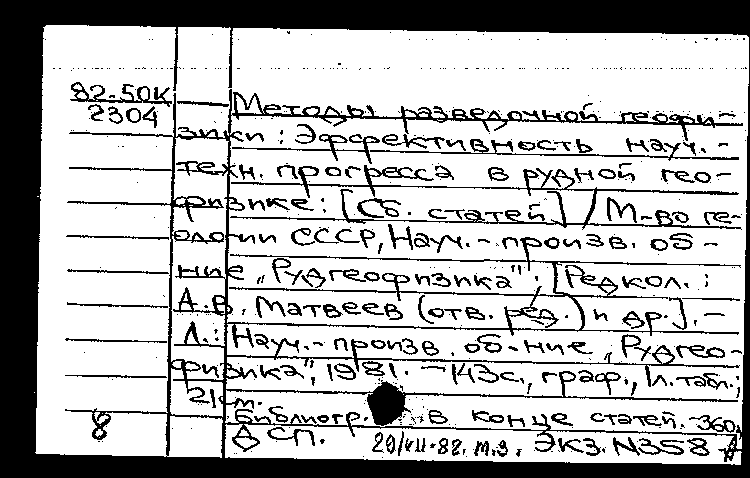 82-50К
2304
Методы разведочной геофи-
зики: Эффективность науч.-
техн. прогресса в рудной гео-
физике: [Сб. статей] / М-во ге-
ологии СССР, Науч.-произв. об-
ние „Рудгеофизика"; [Редкол.:
А.В. Матвеев (отв. ред.) и др.]. -
Л.: Науч.-произв. об-ние „Рудгео-
физика", 1981. - 143с., граф., ил. табл.;
21см.
Библиогр. в конце статей. - 360
8 ДСП. 20/VII-82. м.з. Экз. N358